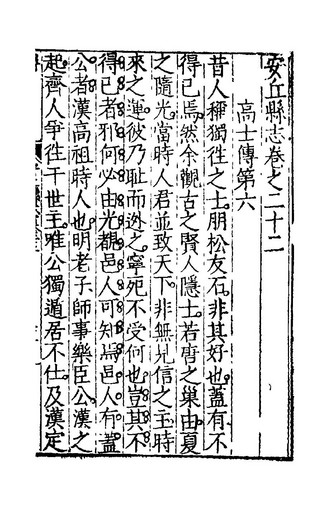 安丘縣志卷之二十二
高士傳第六
昔人稱獨徃之士朋松友石。非其好也。蓋有不
得已焉。然余觀古之賢人隱士。若唐之巢由夏
之隨光。當時人君並致天下。非無見信之主。時
來之運。彼乃耻而逃之。寧死不受何也。豈其不
得已者邪。何必由光。覩邑人可知焉。邑人有蓋
公者。漢高祖時人也。明老子師事樂臣公。漢之
起。齊人爭徃干世主。唯公獨遁居不仕。及漢定